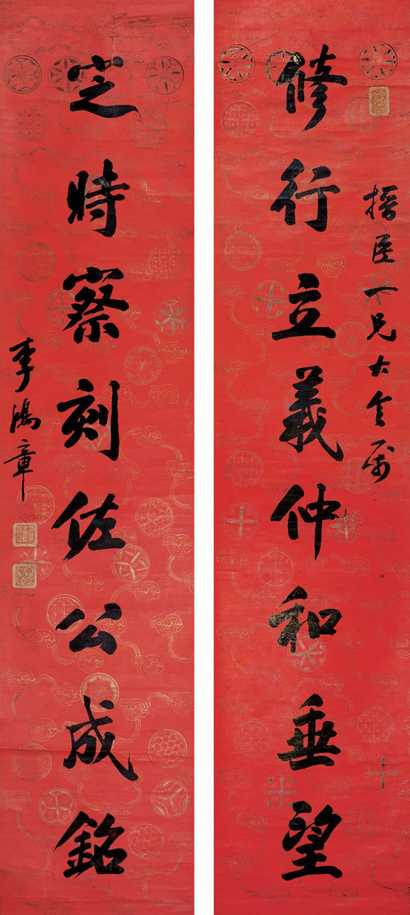 脩行立義仲和垂望
搢臣仁兄大令属
定時察刻佐公成銘
李鴻章